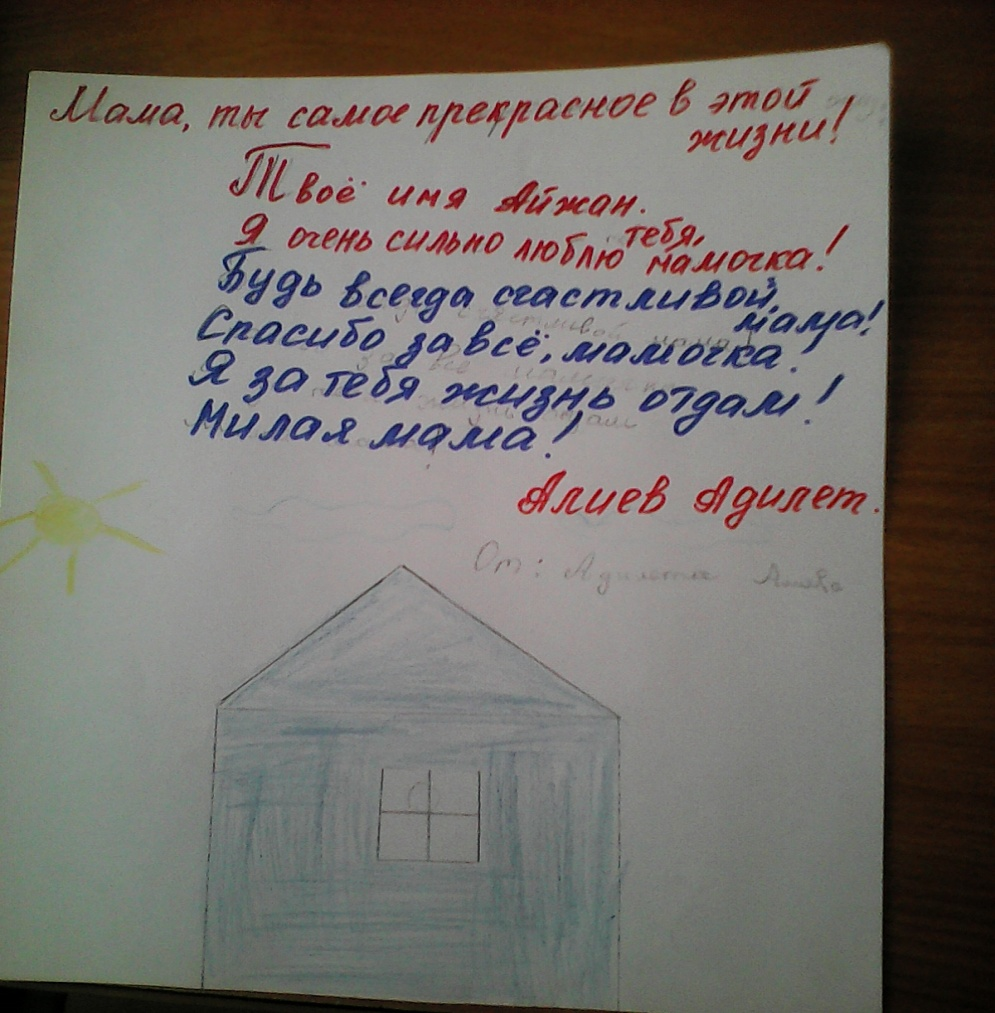 Мама, ты самое прекрасное в этой
жизни!
Твоё имя Айжан.
Я очень сильно люблю тебя,
мамочка!
Будь всегда счастливой,
мама!
Спасибо за всё, мамочка!
Я за тебя жизнь отдам!
Милая мама!
Алиев Адилет.
От: Адилета Алиева